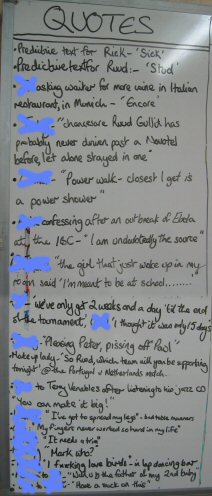 QUOTES
• Predictive text for Rick - 'Sick'
• Predictive text for Ruud:- 'Stud'
asking waiter for more wine in Italian
restaurant, in Munich - "Encore"
"chancesare Ruud Gullit has
probably never driven past a Novotel
before, let alone stayed in one"
"Power walk - closest I get is
a power shower"
confessing after an outbreak of Ebola
at the IBC - "I am undoubtedly the source"
"the girl that just woke up in my
room said 'I'm meant to be at school........
- we've only got 2 weeks and a day 'til the end
of the tournament, 'I thought it was only 15 days'
"Pleasing Peter, pissing off Paul"
Make up lady - 'So Ruud, which team will you be supporting
tonight' @ the Portugal v Netherlands match.
to Terry Venables after listening to his jazz CD
"You can make it big!"
"I've got to spread my legs" - bad table manners
"My fingers never worked so hard in my life"
"It needs a trim"
"Mark who?
"I fucking love birds - in lap dancing bar..
"Will U B the father of my 2nd baby"
"Have a suck on this"